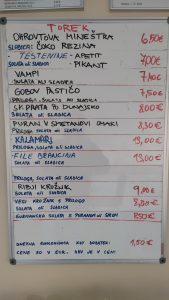 TOREK
OHROVTOVA MINEŠTRA 6,50€
SLADICA: ČOKO REZINA
TESTENINE - APETIT 7,00€
SOLATA ALI SLADICA - PIKANT
VAMPI 7,10€
SOLATA ALI SLADICA
GOBOV PASTIČO 7,50€
PRILOGA, SOLATA ALI SLADICA
SK. PRATA PO DUNAJSKO 8,00€
SOLATA ALI SLADICA
PURAN V SMETANOVI OMAKI 8,30€
PRILOGA, SOLATA ALI SLADICA
KALAMARI 13,00€
PRILOGA, SOLATA ALI SLADICA
FILE BRANCINA 13,00€
PRILOGA, SOLATA ALI SLADICA
RIBJI KROŽNIK
SOLATA ALI SLADICA
VEGI KROŽNIK S PRILOGO 8,00€
SOLATA ALI SLADICA
SOLATA S PURANOM IN SIROM 8,50€
DNEVNA KOT DODATEK: 1,50€
CENE SO V EUR. DDV JE V CENI